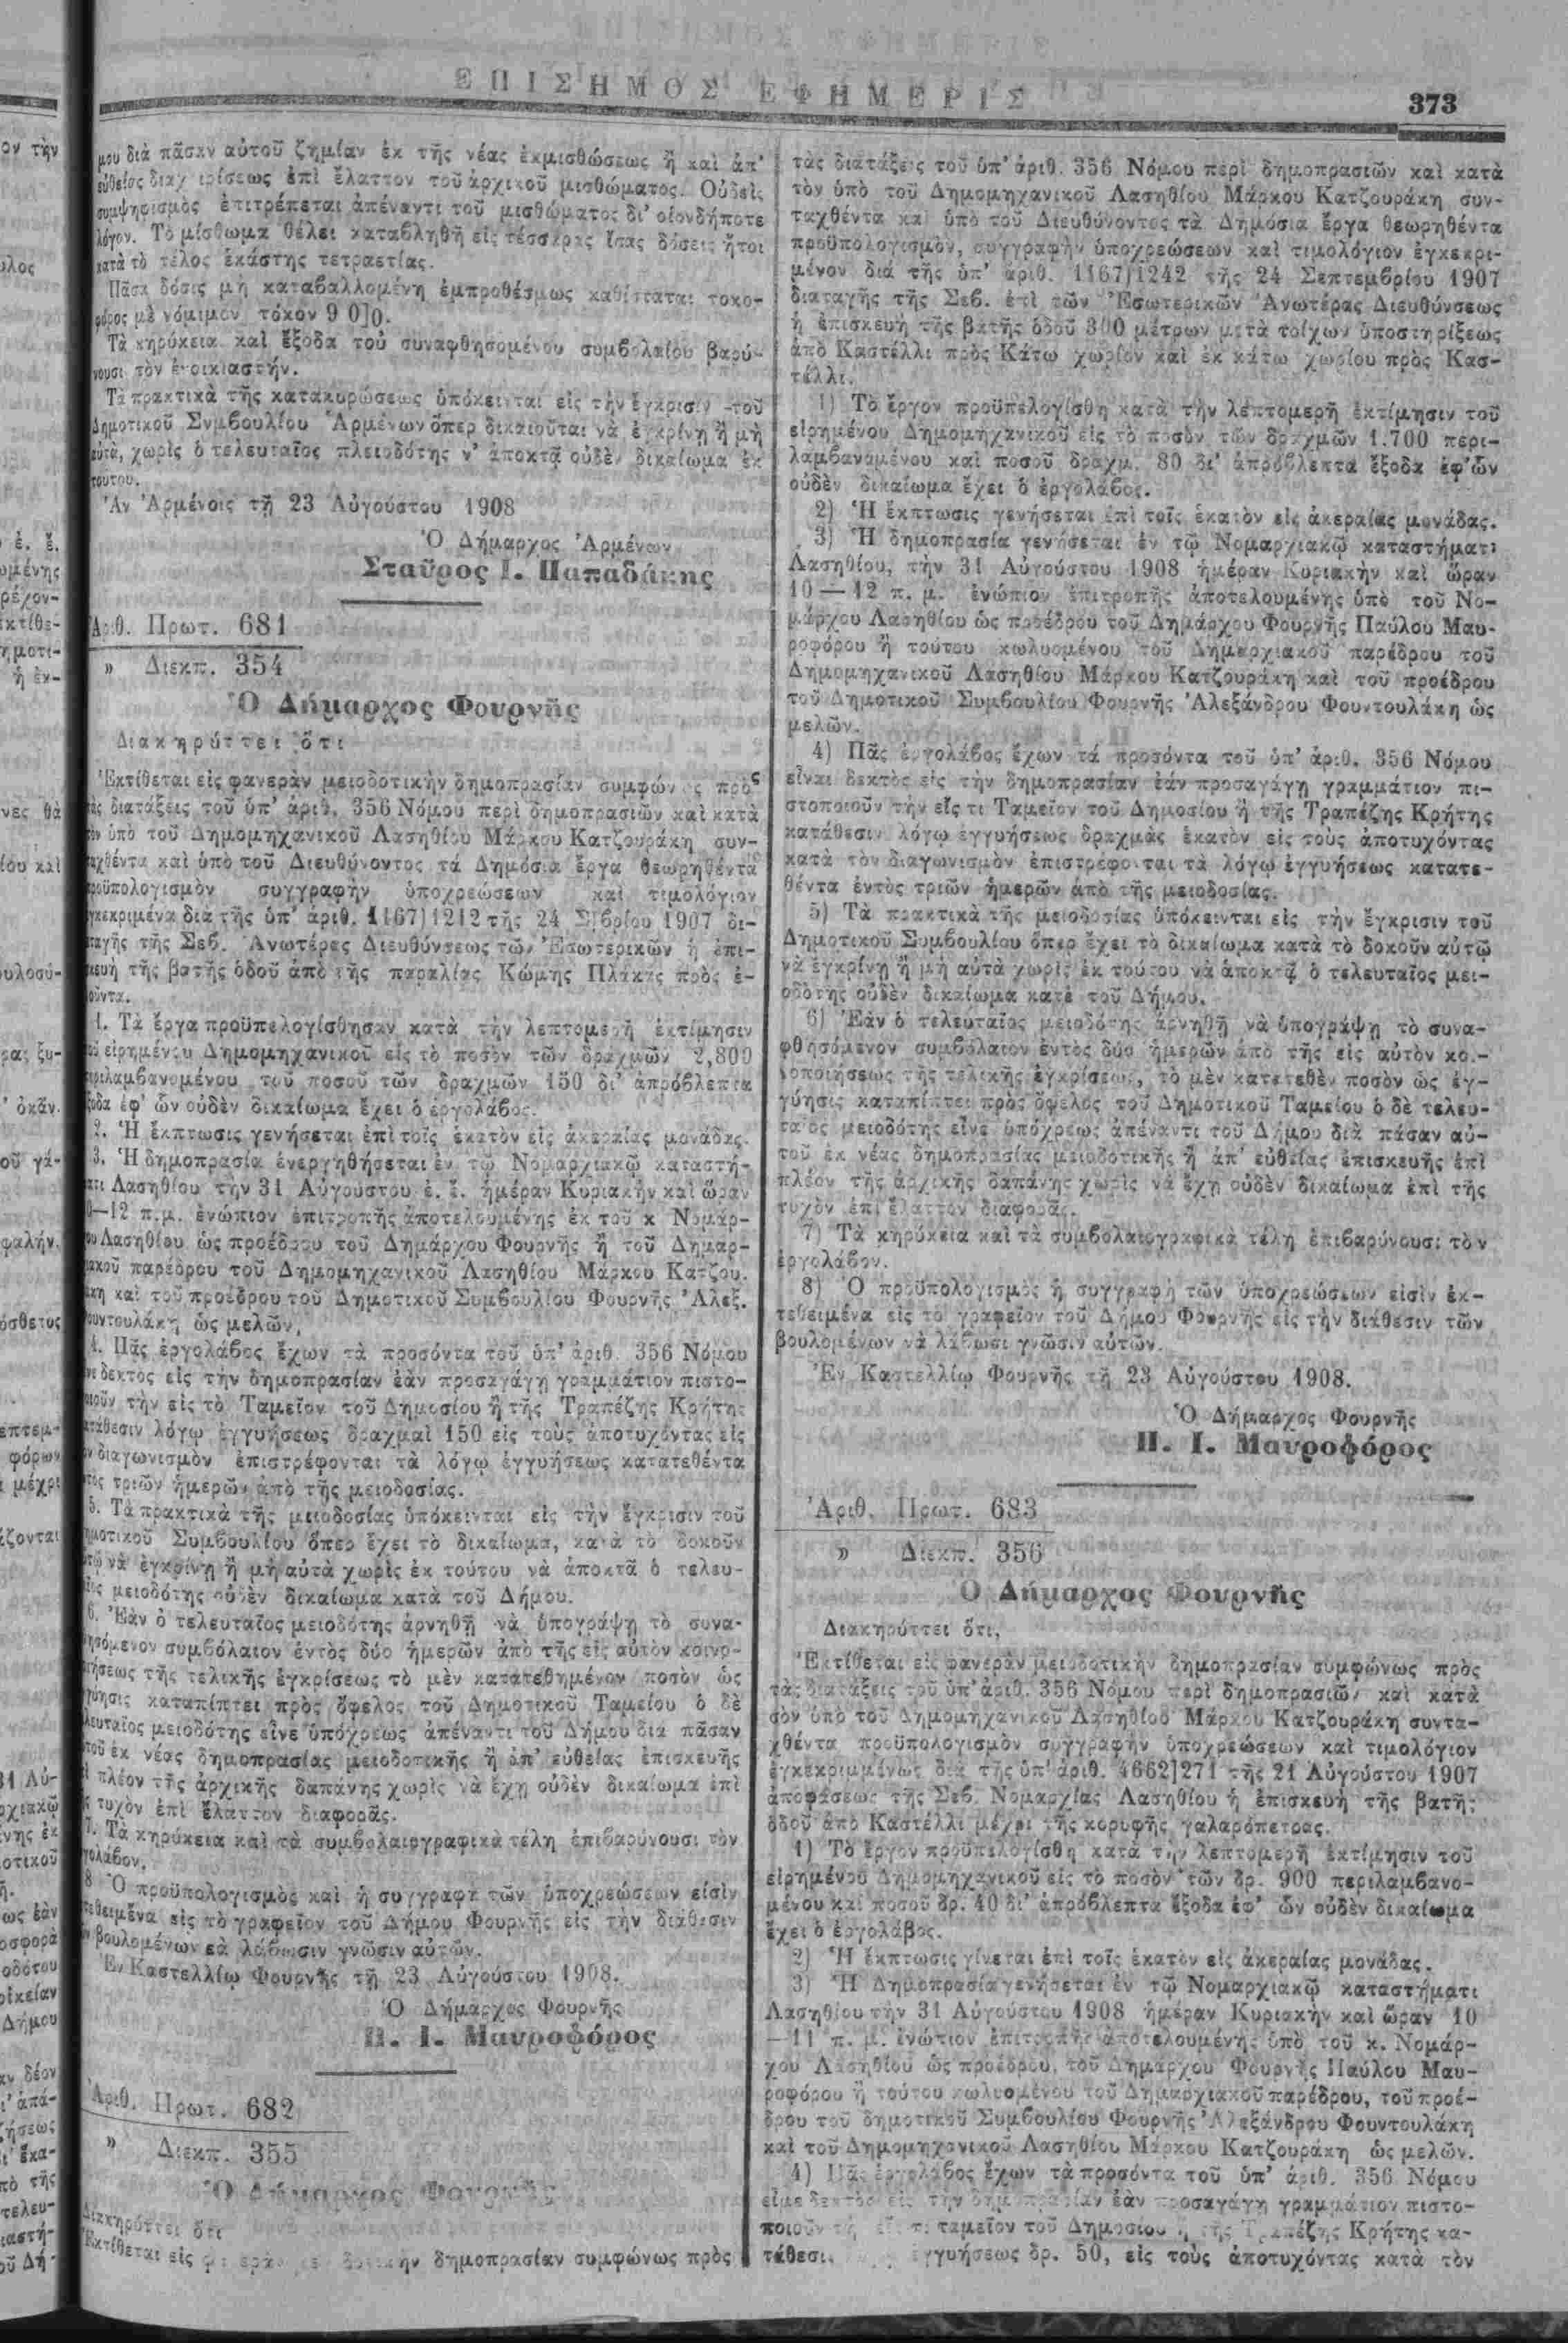 ΕΠΙΣΗΜΟΣ ΕΦΗΜΕΡΙΣ
373
μου διὰ πᾶσαν αὐτοῦ ζημίαν ἐκ τῆς νέας ἐκμισθώσεως ἢ καὶ ἀπ'
εὐθείας διαχ ιρίσεως ἐπὶ ἔλαττον τοῦ ἀρχικοῦ μισθώματος. Οὐδεὶς
συμψηφισμὸς ἐπιτρέπεται ἀπέναντι τοῦ μισθώματος δι' οἱονδήποτε
λόγον. Τὸ μίσθωμα θέλει καταβληθῆ εἰς τέσσαρας ἴσας δόσεις ἤτοι
κατὰ τὸ τέλος ἑκάστης τετραετίας.
Πᾶσα δόσις μὴ καταβαλλομένη ἐμπροθέσμως καθίσταται τοκο-
φόρος μὲ νόμιμον τόκον 9 0]0.
Τὰ κηρύκεια καὶ ἔξοδα τοῦ συναφθησομένου συμβολαίου βαρύ-
νουσι τὸν ἐνοικιαστήν.
Τὰ πρακτικὰ τῆς κατακυρώσεως ὑπόκεινται εἰς τὴν ἔγκρισιν τοῦ
Δημοτικοῦ Συμβουλίου Ἀρμένων ὅπερ δικαιοῦται νὰ ἐγκρίνῃ ἢ μὴ
αὐτὰ, χωρὶς ὁ τελευταῖος πλειοδότης ν' ἀποκτᾷ οὐδὲν δικαίωμα ἐκ
τούτου.
Ἀν Ἀρμένοις τῇ 23 Αὐγούστου 1908
Ὁ Δήμαρχος Ἀρμένων
Σταῦρος Ι. Παπαδάκης
Ἀριθ. Πρωτ. 681
» Διεκπ. 354
Ὁ Δήμαρχος Φουρνῆς
Διακηρύττει ὅτι
Ἐκτίθεται εἰς φανερὰν μειοδοτικὴν δημοπρασίαν συμφών ς πρὸς
τὰς διατάξεις τοῦ ὑπ' ἀριθ. 356 Νόμου περὶ δημοπρασιῶν καὶ κατὰ
τὸν ὑπὸ τοῦ Δημομηχανικοῦ Λασηθίου Μάρκου Κατζουράκη συν-
ταχθέντα καὶ ὑπὸ τοῦ Διευθύνοντος τά Δημόσια ἔργα θεωρηθέντα
προϋπολογισμὸν συγγραφὴν ὑποχρεώσεων καὶ τιμολόγιον
ἐγκεκριμένα διὰ τῆς ὑπ' ἀριθ. 1167]1212 τῆς 24 Σ]βρίου 1907 δι-
αταγῆς τῆς Σεβ. Ἀνωτέρας Διευθύνσεως τῶν Ἐσωτερικῶν ἡ ἐπι-
σκευὴ τῆς βατῆς ὁδοῦ ἀπὸ τῆς παραλίας Κώμης Πλάκας πρὸς ἐ-
οῦντα.
1. Τὰ ἔργα προϋπελογίσθησαν κατὰ τὴν λεπτομερῆ ἐκτίμησιν
τοῦ εἰρημένου Δημομηχανικοῦ εἰς τὸ ποσὸν τῶν δραχμῶν 2,800
περιλαμβανομένου τοῦ ποσοῦ τῶν δραχμῶν 150 δι' ἀπρόβλεπτα
ἔξοδα ἐφ' ὧν οὐδὲν δικαίωμα ἔχει ὁ ἐργολάβος.
2. Ἡ ἔκπτωσις γενήσεται ἐπὶ τοῖς ἑκατὸν εἰς ἀκεραίας μονάδας.
3. Ἡ δημοπρασία ἐνεργηθήσεται ἐν τῷ Νομαρχιακῷ καταστή-
ματι Λασηθίου τὴν 31 Αὐγούστου ἐ. ἔ. ἡμέραν Κυριακὴν καὶ ὥραν
10—12 π.μ. ἐνώπιον ἐπιτροπῆς ἀποτελουμένης ἐκ τοῦ κ Νομάρ-
χου Λασηθίου ὡς προέδρου τοῦ Δημάρχου Φουρνῆς ἢ τοῦ Δημαρ-
χιακοῦ παρέδρου τοῦ Δημομηχανικοῦ Λασηθίου Μάρκου Κατζου.
ράκη καὶ τοῦ προέδρου τοῦ Δημοτικοῦ Συμβουλίου Φουρνῆς Ἀλεξ.
Φουντουλάκη ὡς μελῶν.
4. Πᾶς ἐργολάβος ἔχων τὰ προσόντα τοῦ ὑπ' ἀριθ. 356 Νόμου
εἶνε δεκτὸς εἰς τὴν δημοπρασίαν ἐὰν προσαγάγῃ γραμμάτιον πιστο-
ποιοῦν τὴν εἰς τὸ Ταμεῖον τοῦ Δημοσίου ἢ τῆς Τραπέζης Κρήτης
κατάθεσιν λόγῳ ἐγγυήσεως δραχμαὶ 150 εἰς τοὺς ἀποτυχόντας εἰς
τὸν διαγωνισμὸν ἐπιστρέφονται τὰ λόγῳ ἐγγυήσεως κατατεθέντα
ἐντὸς τριῶν ἡμερῶν ἀπὸ τῆς μειοδοσίας.
5. Τὰ πρακτικὰ τῆς μειοδοσίας ὑπόκεινται εἰς τὴν ἔγκρισιν τοῦ
Δημοτικοῦ Συμβουλίου ὅπερ ἔχει τὸ δικαίωμα, κατὰ τὸ δοκοῦν
αὐτῷ νὰ ἐγκρίνῃ ἢ μὴ αὐτὰ χωρὶς ἐκ τούτου νὰ ἀποκτᾶ ὁ τελευ-
ταῖος μειοδότης οὐδὲν δικαίωμα κατὰ τοῦ Δήμου.
6. Ἐὰν ὁ τελευταῖος μειοδότης ἀρνηθῆ νὰ ὑπογράψῃ τὸ συνα-
φθησόμενον συμβόλαιον ἐντὸς δύο ἡμερῶν ἀπὸ τῆς εἰς αὐτὸν κοινο-
ποιήσεως τῆς τελικῆς ἐγκρίσεως τὸ μὲν κατατεθημένον ποσὸν ὡς
ἐγγύησις καταπίπτει πρὸς ὄφελος τοῦ Δημοτικοῦ Ταμείου ὁ δὲ
τελευταῖος μειοδότης εἶνε ὑπόχρεως ἀπέναντι τοῦ Δήμου διὰ πᾶσαν
αὐτοῦ ἐκ νέας δημοπρασίας μειοδοτικῆς ἢ ἀπ' εὐθείας ἐπισκευῆς
ἐπὶ πλέον τῆς ἀρχικῆς δαπάνης χωρὶς νὰ ἔχῃ οὐδὲν δικαίωμα ἐπὶ
τῆς τυχὸν ἐπὶ ἔλαττον διαφορᾶς.
7. Τὰ κηρύκεια καὶ τὰ συμβολαιογραφικὰ τέλη ἐπιβαρύνουσι τὸν
ἐργολάβον.
8 Ὁ προϋπολογισμὸς καὶ ἡ συγγραφὴ τῶν ὑποχρεώσεων εἰσὶν
ἐκτεθειμένα εἰς τὸ γραφεῖον τοῦ Δήμου Φουρνῆς εἰς τὴν διάθεσιν
τῶν βουλομένων νὰ λάβωσιν γνῶσιν αὐτῶν.
Ἐν Καστελλίῳ Φουρνῆς τῇ 23 Αὐγούστου 1908.
Ὁ Δήμαρχος Φουρνῆς
Π. Ι. Μαυροφόρος
Ἀριθ. Πρωτ. 682
» Διεκπ. 355
Ὁ Δήμαρχος Φουρνῆς
Διακηρύττει ὅτι
Ἐκτίθεται εἰς δημοπρασίαν συμφώνως πρὸς
τὰς διατάξεις τοῦ ὑπ' ἀριθ. 356 Νόμου περὶ δημοπρασιῶν καὶ κατὰ
τὸν ὑπὸ τοῦ Δημομηχανικοῦ Λασηθίου Μάρκου Κατζουράκη συν-
ταχθέντα καὶ ὑπὸ τοῦ Διευθύνοντος τὰ Δημόσια ἔργα θεωρηθέντα
προϋπολογισμὸν, συγγραφὴν ὑποχρεώσεων καὶ τιμολόγιον ἐγκεκρι-
μένον διὰ τῆς ὑπ' ἀριθ. 1167]1242 τῆς 24 Σεπτεμβρίου 1907
διαταγῆς τῆς Σεβ. ἐπὶ τῶν Ἐσωτερικῶν Ἀνωτέρας Διευθύνσεως
ἡ ἐπισκευὴ τῆς βατῆς ὁδοῦ 300 μέτρων μετὰ τοίχων ὑποστηρίξεως
ἀπὸ Καστέλλι πρὸς Κάτω χωρίον καὶ ἐκ κάτω χωρίου πρὸς Κασ-
τέλλι.
1) Τὸ ἔργον προϋπελογίσθη κατὰ τὴν λεπτομερῆ ἐκτίμησιν τοῦ
εἰρημένου Δημομηχανικοῦ εἰς τὸ ποσὸν τῶν δραχμῶν 1.700 περι-
λαμβανομένου καὶ ποσοῦ δραχμ. 80 δι' ἀπρόβλεπτα ἔξοδα ἐφ'ὧν
οὐδὲν δικαίωμα ἔχει ὁ ἐργολάβος.
2) Ἡ ἔκπτωσις γενήσεται ἐπὶ τοῖς ἑκατὸν εἰς ἀκεραίας μονάδας.
3) Ἡ δημοπρασία γενήσεται ἐν τῷ Νομαρχιακῷ καταστήματι
Λασηθίου, τὴν 31 Αὐγούστου 1908 ἡμέραν Κυριακὴν καὶ ὥραν
10 — 12 π. μ. ἐνώπιον ἐπιτροπῆς ἀποτελουμένης ὑπὸ τοῦ Νο-
μάρχου Λασηθίου ὡς προέδρου τοῦ Δημάρχου Φουρνῆς Παύλου Μαυ-
ροφόρου ἢ τούτου κωλυομένου τοῦ Δημαρχιακοῦ παρέδρου τοῦ
Δημομηχανικοῦ Λασηθίου Μάρκου Κατζουράκη καὶ τοῦ προέδρου
τοῦ Δημοτικοῦ Συμβουλίου Φουρνῆς Ἀλεξάνδρου Φουντουλάκη ὡς
μελῶν.
4) Πᾶς ἐργολάβος ἔχων τά προσόντα τοῦ ὑπ' ἀριθ. 356 Νόμου
εἶναι δεκτὸς εἰς τὴν δημοπρασίαν ἐάν προσαγάγῃ γραμμάτιον πι-
στοποιοῦν τὴν εἴς τι Ταμεῖον τοῦ Δημοσίου ἢ τῆς Τραπέζης Κρήτης
κατάθεσιν λόγῳ ἐγγυήσεως δραχμὰς ἑκατὸν εἰς τοὺς ἀποτυχόντας
κατὰ τὸν διαγωνισμὸν ἐπιστρέφονται τὰ λόγῳ ἐγγυήσεως κατατε-
θέντα ἐντὸς τριῶν ἡμερῶν ἀπὸ τῆς μειοδοσίας.
5) Τὰ πρακτικὰ τῆς μειοδοσίας ὑπόκεινται εἰς τὴν ἔγκρισιν τοῦ
Δημοτικοῦ Συμβουλίου ὅπερ ἔχει τὸ δικαίωμα κατὰ τὸ δοκοῦν αὐτῷ
νὰ ἐγκρίνῃ ἢ μὴ αὐτὰ χωρὶς ἐκ τούτου νὰ ἀποκτᾷ ὁ τελευταῖος μει-
οδότης οὐδὲν δικαίωμα κατὰ τοῦ Δήμου.
6) Ἐὰν ὁ τελευταῖος μειοδότης ἀρνηθῆ νὰ ὑπογράψῃ τὸ συνα-
φθησόμενον συμβόλαιον ἐντὸς δύο ἡμερῶν ἀπὸ τῆς εἰς αὐτὸν κοι-
νοποιήσεως τῆς τελικῆς ἐγκρίσεως, τὸ μὲν κατατεθὲν ποσὸν ὡς ἐγ-
γύησις καταπίπτει πρὸς ὄφελος τοῦ Δημοτικοῦ Ταμείου ὁ δὲ τελευ-
ταῖος μειοδότης εἶνε ὑπόχρεως ἀπέναντι τοῦ Δήμου διὰ πᾶσαν αὐ-
τοῦ ἐκ νέας δημοπρασίας μειοδοτικῆς ἢ ἀπ' εὐθείας ἐπισκευῆς ἐπὶ
πλέον τῆς ἀρχικῆς δαπάνης χωρὶς νὰ ἔχῃ οὐδὲν δικαίωμα ἐπὶ τῆς
τυχὸν ἐπὶ ἔλαττον διαφορᾶς.
7) Τὰ κηρύκεια καὶ τὰ συμβολαιογραφικὰ τέλη ἐπιβαρύνουσι τὸν
ἐργολάβον.
8) Ὁ προϋπολογισμὸς ἡ συγγραφὴ τῶν ὑποχρεώσεων εἰσὶν ἐκ-
τεθειμένα εἰς τὸ γραφεῖον τοῦ Δήμου Φουρνῆς εἰς τὴν διάθεσιν τῶν
βουλομένων νὰ λάβωσι γνῶσιν αὐτῶν.
Ἐν Καστελλίῳ Φουρνῆς τῇ 23 Αὐγούστου 1908.
Ὁ Δήμαρχος Φουρνῆς
Π. Ι. Μαυροφόρος
Ἀριθ. Πρωτ. 683
» Διεκπ. 356
Ὁ Δήμαρχος Φουρνῆς
Διακηρύττει ὅτι,
Ἐκτίθεται εἰς φανερὰν μειοδοτικὴν δημοπρασίαν συμφώνως πρὸς
τὰς διατάξεις τοῦ ὑπ' ἀριθ. 356 Νόμου περὶ δημοπρασιῶν καὶ κατὰ
σὸν ὑπὸ τοῦ Δημομηχανικοῦ Λασηθίου Μάρκου Κατζουράκη συντα-
χθέντα προϋπολογισμὸν συγγραφὴν ὑποχρεώσεων καὶ τιμολόγιον
ἐγκεκριμμένως διὰ τῆς ὑπ' ἀριθ. 4662]271 τῆς 21 Αὐγούστου 1907
ἀποφάσεως τῆς Σεβ. Νομαρχίας Λασηθίου ἡ ἐπισκευὴ τῆς βατῆς
ὁδοῦ ἀπὸ Καστέλλι μέχρι τῆς κορυφῆς γαλαρόπετρας.
1) Τὸ ἔργον προϋπελογίσθη κατὰ τὴν λεπτομερῆ ἐκτίμησιν τοῦ
εἰρημένου Δημομηχανικοῦ εἰς τὸ ποσὸν τῶν δρ. 900 περιλαμβανο-
μένου καὶ ποσοῦ δρ. 40 δι' ἀπρόβλεπτα ἔξοδα ἐφ' ὧν οὐδὲν δικαίωμα
ἔχει ὁ ἐργολάβος.
2) Ἡ ἔκπτωσις γίνεται ἐπὶ τοῖς ἑκατὸν εἰς ἀκεραίας μονάδας.
3) Ἡ Δημοπρασία γενήσεται ἐν τῷ Νομαρχιακῷ καταστήματι
Λασηθίου τὴν 31 Αὐγούστου 1908 ἡμέραν Κυριακὴν καὶ ὥραν 10
—11 π. μ. ἐνώπιον ἐπιτροπῆς ἀποτελουμένης ὑπὸ τοῦ κ. Νομάρ-
χου Λασηθίου ὡς προέδρου, τοῦ Δημάρχου Φουρνῆς Παύλου Μαυ-
ροφόρου ἢ τούτου κωλυομένου τοῦ Δημαρχιακοῦ παρέδρου, τοῦ προέ-
δρου τοῦ δημοτικοῦ Συμβουλίου Φουρνῆς Ἀλεξάνδρου Φουντουλάκη
καὶ τοῦ Δημομηχανικοῦ Λασηθίου Μάρκου Κατζουράκη ὡς μελῶν.
4) Πᾶς ἐργολάβος ἔχων τὰ προσόντα τοῦ ὑπ' ἀριθ. 356 Νόμου
εἶμε δεκτὸς εἰς τὴν δημοπρασίαν ἐὰν προσαγάγῃ γραμμάτιον πιστο-
ποιοῦν ταμεῖον τοῦ Δημοσίου ἢ τῆς Τραπέζης Κρήτης κα-
τάθεσι. ἐγγυήσεως δρ. 50, εἰς τοὺς ἀποτυχόντας κατὰ τὸν